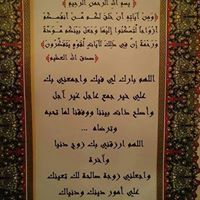 ﴿ بسم الله الرحمن الرحيم ﴾
﴿وَمِنْ آيَاتِهِ أَنْ خَلَقَ لَكُم مِّنْ أَنفُسِكُمْ
أَزْوَاجًا لِّتَسْكُنُوا إِلَيْهَا وَجَعَلَ بَيْنَكُم مَّوَدَّةً
وَرَحْمَةً إِنَّ فِي ذَلِكَ لَآيَاتٍ لِّقَوْمٍ يَتَفَكَّرُونَ﴾
﴿صدق الله العظيم﴾
اللهم بارك لي فيك واجمعني بك
على خير جمع عاجل غير آجل
وأصلح ذات بيننا ووفقنا لما تحبه
وترضاه ...
اللهم ارزقني بك زوج دنيا
وآخرة
واجعلني زوجة صالحة لك تعينك
على أمور دينك ودنياك